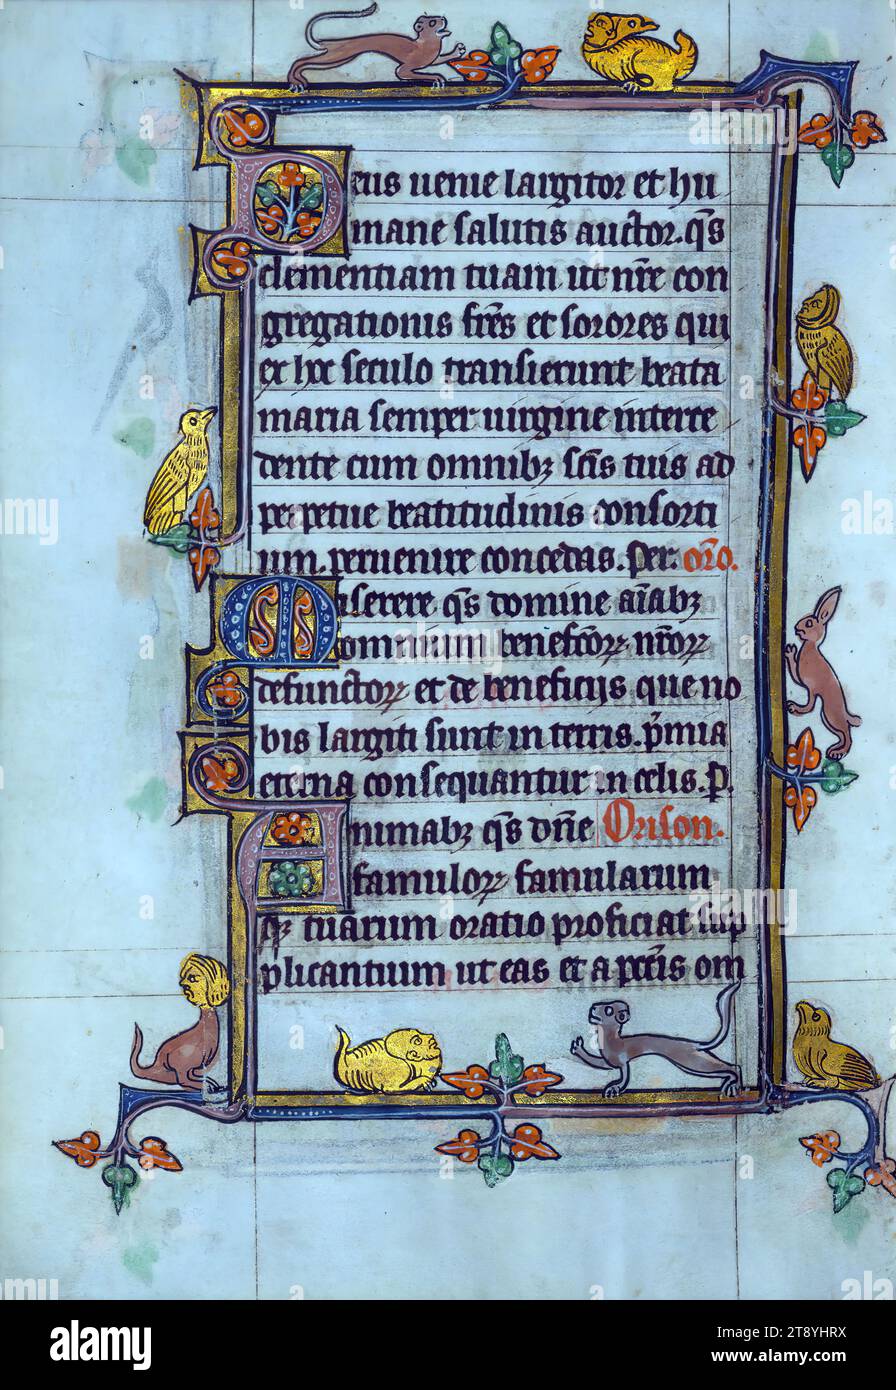 Deus uenie largitor et hu
mane salutis auctor. qs
clementiam tuam ut nre con
gregationis fres et sorores qui
ex hoc seculo transierunt beata
maria semper uirgine interce
dente cum omnibꝫ scis tuis ad
perpetue beatitudinis consorti
um. peruenire concedas. Per. oro.
Miserere qs domine aiabꝫ
omnium benefcoꝝ nroꝝ
defunctoꝝ et de beneficijs que no
bis largiti sunt in terris. pmia
eterna consequantur in celis. P.
Animabꝫ qs dne Orison.
famuloꝝ famularum
qꝫ tuarum oratio proficiat sup
plicantium ut eas et a pctis om
alamy
Image ID: 2T8YHRX
www.alamy.com